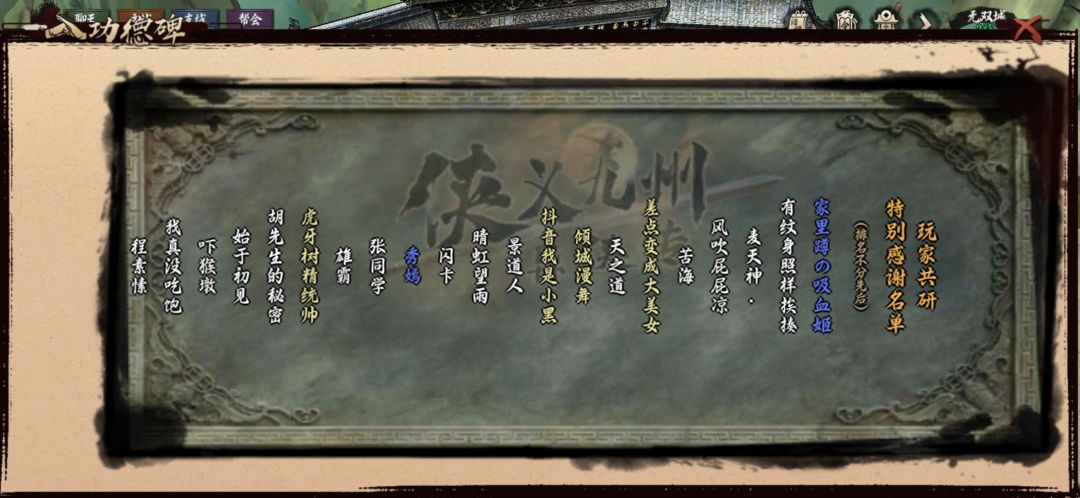 功德碑
帮会
无双城
侠义九州
玩家共研
特别感谢名单
(排名不分先后)
家里蹲の吸血姬
有纹身照样挨揍
麦天神．
风吹屁屁凉
苦海
差点变成大美女
天之道
倾城漫舞
抖音我是小黑
景道人
晴虹望雨
闪卡
秀嫣
张同学
雄霸
虎牙树精统帅
胡先生的秘密
始于初见
吓猴墩
我真没吃饱
程素愫